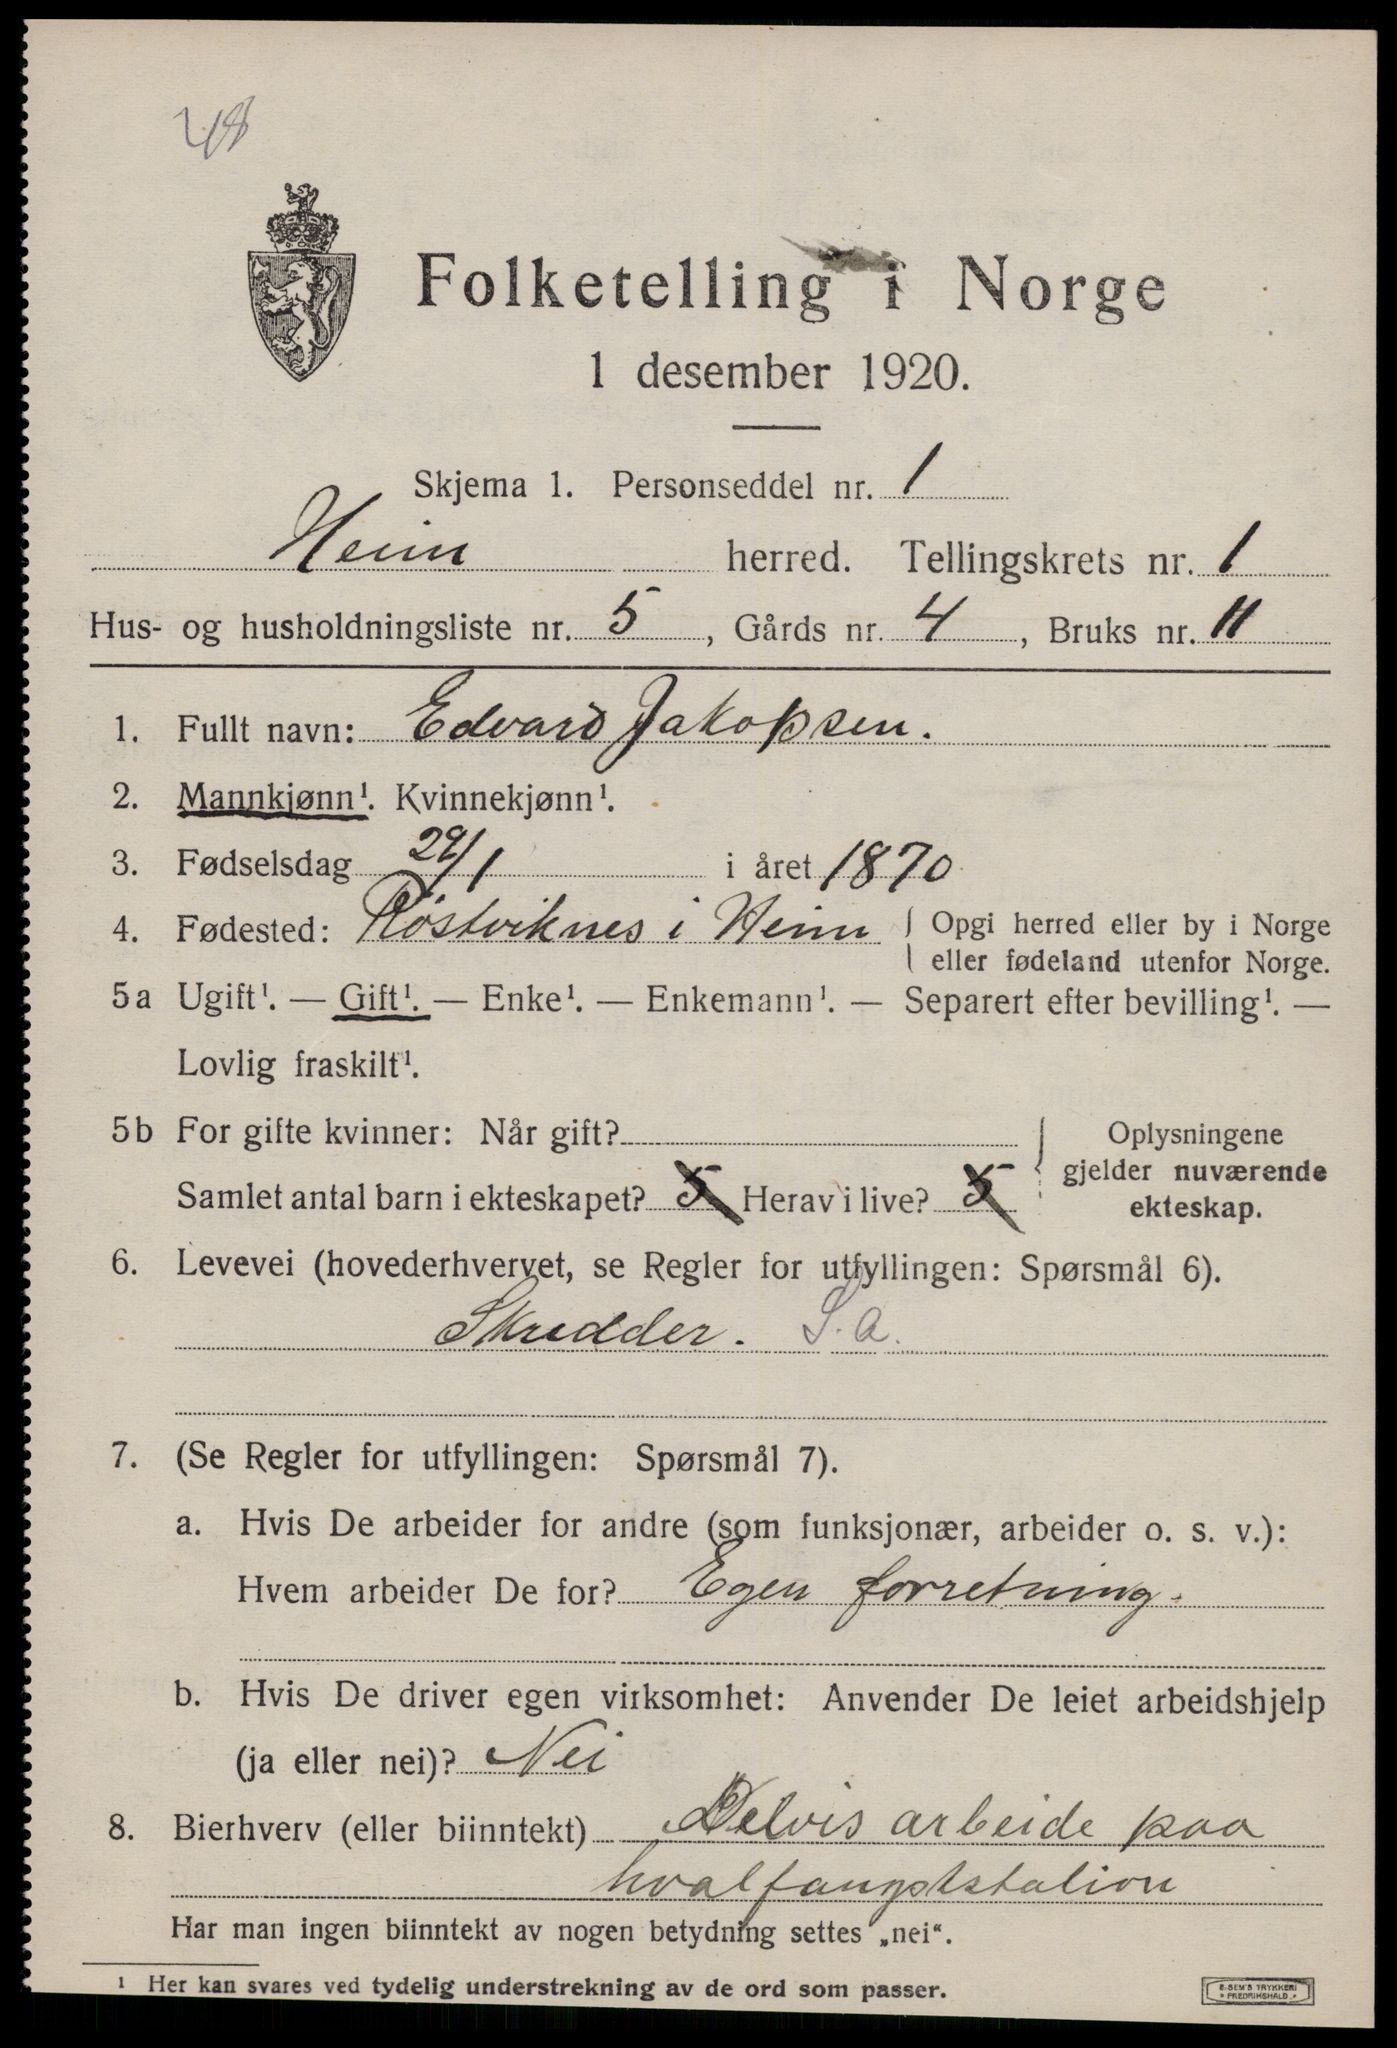 48
Folketelling i Norge
1 desember 1920.
Skjema 1. Personseddel nr. 1
Heim herred. Tellingskrets nr. 1
Hus- og husholdningsliste nr. 5, Gårds nr. 4, Bruks nr. 11
1. Fullt navn: Edvard Jakopsen.
2. Mannkjønn¹. Kvinnekjønn¹.
3. Fødselsdag 29/1 i året 1870
4. Fødested: Röstviknes i Heim { Opgi herred eller by i Norge
eller fødeland utenfor Norge.
5a Ugift¹. — Gift¹. — Enke¹. — Enkemann¹. — Separert efter bevilling¹. —
Lovlig fraskilt¹.
5b For gifte kvinner: Når gift?
Samlet antal barn i ekteskapet? 5 Herav i live? 5
Oplysningene
gjelder nuværende
ekteskap.
6. Levevei (hovederhvervet, se Regler for utfyllingen: Spørsmål 6).
Skredder. S.a.
7. (Se Regler for utfyllingen: Spørsmål 7).
a. Hvis De arbeider for andre (som funksjonær, arbeider o. s. v.):
Hvem arbeider De for? Egen forretning.
b. Hvis De driver egen virksomhet: Anvender De leiet arbeidshjelp
(ja eller nei)? Nei
8. Bierhverv (eller biinntekt) Delvis arbeide paa
hvalfangststation
Har man ingen biinntekt av nogen betydning settes „nei“.
¹ Her kan svares ved tydelig understrekning av de ord som passer.
E. SEM'S TRYKKERI
FREDRIKSHALD